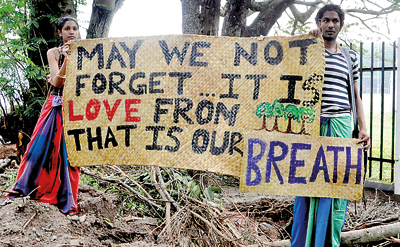 MAY WE NOT
FORGET...IT IS
LOVE FROM
THAT IS OUR
BREATH